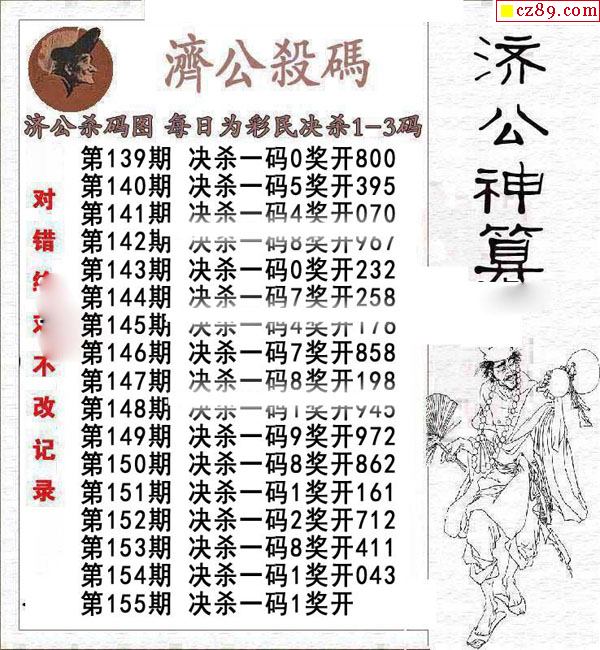 cz89.com
濟公殺碼
济公杀码图 每日为彩民决杀1-3码
第139期 决杀一码0奖开800
第140期 决杀一码5奖开395
第141期 决杀一码4奖开070
第142期 决杀一码8奖开967
第143期 决杀一码0奖开232
第144期 决杀一码7奖开258
第145期 决杀一码4奖开178
第146期 决杀一码7奖开858
第147期 决杀一码8奖开198
第148期 决杀一码1奖开945
第149期 决杀一码9奖开972
第150期 决杀一码8奖开862
第151期 决杀一码1奖开161
第152期 决杀一码2奖开712
第153期 决杀一码8奖开411
第154期 决杀一码1奖开043
第155期 决杀一码1奖开
对错 不改记录
济公神算